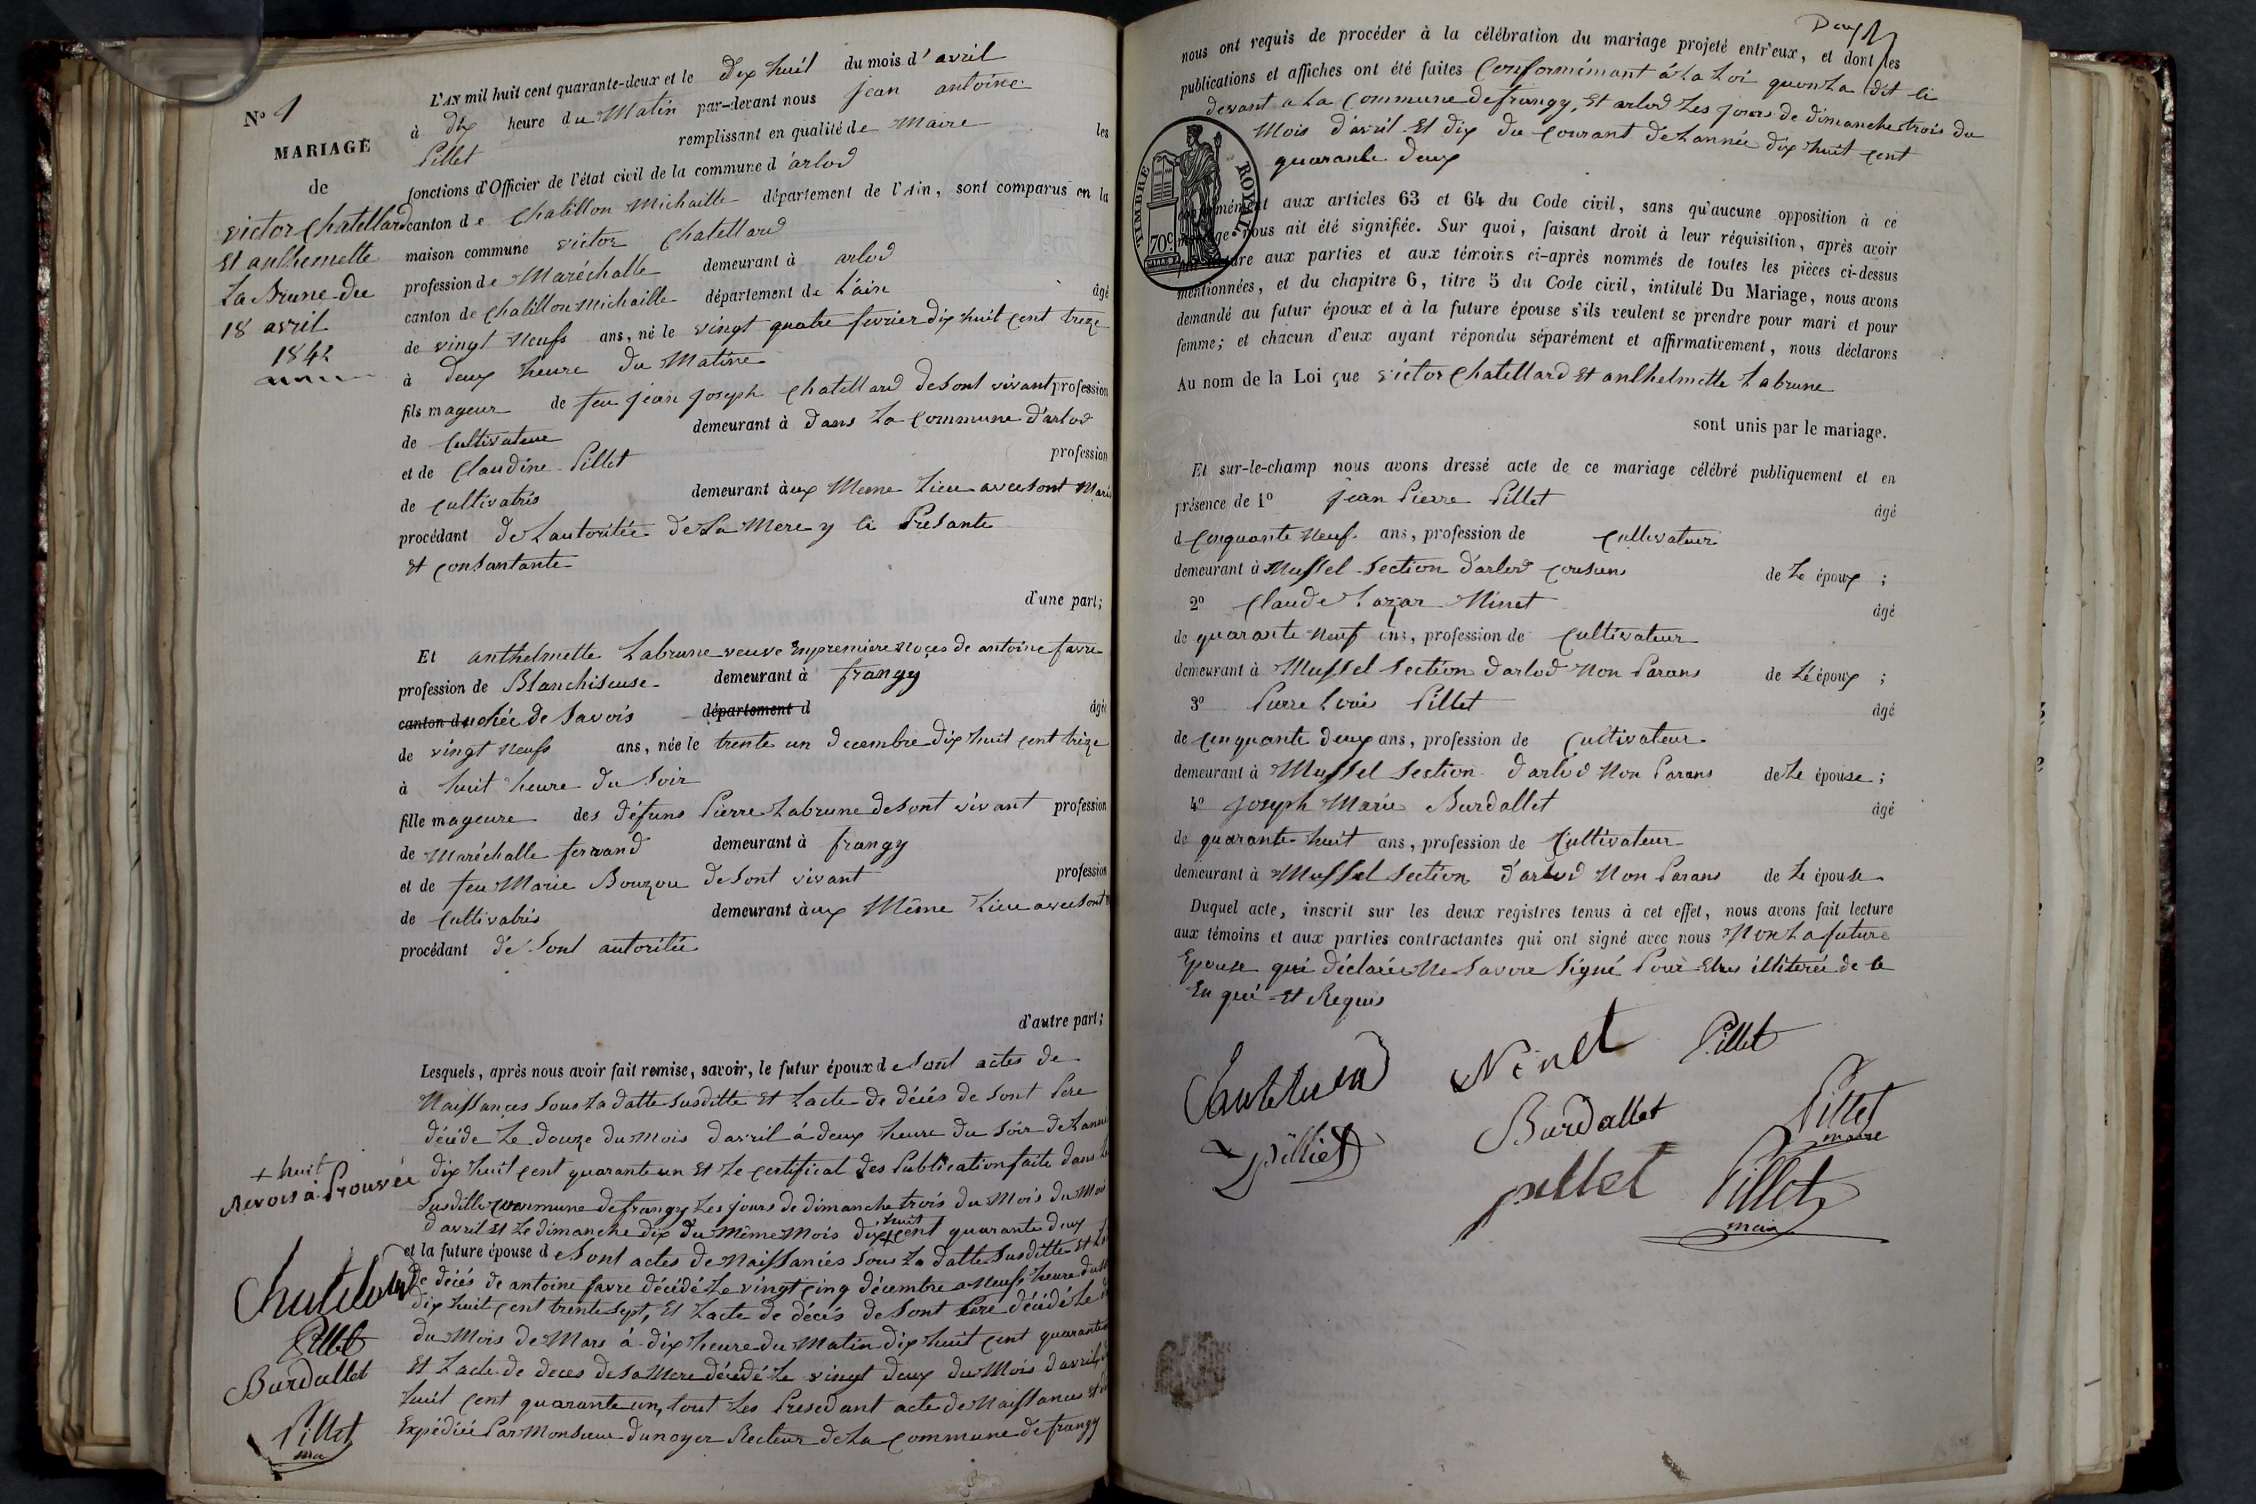 N° 1
MARIAGE
de
victor Chatellard
Et anthemette
La Brune du
18 avril
1842
L'AN mil huit cent quarante-deux et le dix huit du mois d'avril
à dix heure du Matin par-devant nous jean antoine
Pillet remplissant en qualité de Maire les
fonctions d'Officier de l'état civil de la commune d'arlod
canton de Chatillon Michaille département de l'Ain, sont comparus en la
maison commune victor Chatellard
profession de Maréchalle demeurant à arlod
canton de Chatillon Michaille département de L'ain âgé
de vingt Neufs ans, né le vingt quatre fevrier dix huit cent treze
à deux heure du Matin
fils mageur de feu jean joseph Chatellard desont vivant profession
de Cultivateur demeurant à dans La Commune d'arlod
et de Claudine Pillet profession
de cultivatris demeurant àux Meme Lieu avec sont Mari
procédant de Lautoritée deLa Mere y ci Presante
Et Consantante
d'une part;
Et anthelmette Labrune veuve Enpremiere Noces de antoine favre
profession de Blanchiseuse demeurant à frangy
canton duchée de Savois département d âgée
de vingt Neufs ans, née le trente un decembre dix huit cent trèze
à huit heure du Soir
fille mageure des défuns Pierre Labrune desont vivant profession
de Maréchalle ferrand demeurant à frangy
et de feu Marie Bouzou desont vivant profession
de Cultivatris demeurant àux Même Lieu avec sont
procédant de Sont autoritée
d'autre part;
Lesquels, après nous avoir fait remise, savoir, le futur époux de Sont actes de
Naissances Sous La datte Susditte Et Lacte de décés de Sont Pere
décéde Le douze du Mois davril à deux heure du Soir de Lannée
dix huit cent quarante un Et Le certificat des Publication faite dans
Susditte Commune de frangy Les jours de dimanche trois du Mois du Mois
d'avril Et Le dimanche dix du Même Mois dix + huit cent quarante deux
et la future épouse de Sont actes de Naissances Sous La datte Susditte Et
de décés de antoine favre décédé Le vingt cinq décembre a Neufs heure du
dix huit cent trente sept, Et Lacte de décés de Sont Pere décédé Le
du Mois de Mars à dix heure du Matin dix huit cent quarante
Et Lacte de deces de Sa Mere décédé Le vingt deux du Mois d'avril
huit cent quarante un, tout Les Presedant acte de Naissances et
Expédiée Par Monsieur dunoyer Recteur de La Commune de frangy
+ huit
Renvois à Prouvée
Chatelard
Pillet
Burdallet
Pillet
mai
Deux
nous ont requis de procéder à la célébration du mariage projeté entr'eux, et dont les
publications et affiches ont été faites Conformémant à La Loi quon La dit ci
devant a La Commune de frangy, Et arlod Les jours de dimanche trois du
Mois d'avril Et dix du Courant de Lannée dix huit cent
quarante deux
TIMBRE ROYAL.
70c
conformément aux articles 63 et 64 du Code civil, sans qu'aucune opposition à ce
mariage nous ait été signifiée. Sur quoi, faisant droit à leur réquisition, après avoir
lecture aux parties et aux témoins ci-après nommés de toutes les pièces ci-dessus
mentionnées, et du chapitre 6, titre 5 du Code civil, intitulé Du Mariage, nous avons
demandé au futur époux et à la future épouse s'ils veulent se prendre pour mari et pour
femme; et chacun d'eux ayant répondu séparément et affirmativement, nous déclarons
Au nom de la Loi que victor Chatellard Et anthelmette Labrune
sont unis par le mariage.
Et sur-le-champ nous avons dressé acte de ce mariage célébré publiquement et en
présence de 1° jean Pierre Pillet âgé
d Cinquante Neuf ans, profession de Cultivateur
demeurant à Mussel Section d'arlod Cousins de Le époux ;
2° Claude Lazar Ninet âgé
de quarante Neuf ans, profession de Cultivateur
demeurant à Mussel Section d'arlod Non Parans de Le époux ;
3° Pierre Louis Pillet âgé
de Cinquante deux ans, profession de Cultivateur
demeurant à Mussel Section d'arlod Non Parans de Le épouse ;
4° joseph Marie Burdallet âgé
de quarante huit ans, profession de Cultivateur
demeurant à Mussel Section d'arlod Non Parans de Le épouse
Duquel acte, inscrit sur les deux registres tenus à cet effet, nous avons fait lecture
aux témoins et aux parties contractantes qui ont signé avec nous Non La future
Epouse qui déclarée Ne Savoir Signé Pour Etres illiterée de ce
En quié Et Requis
Chatelard Ninet Pillet
Burdallet Pillet
maire
Pilliet pillet Pillet
maire